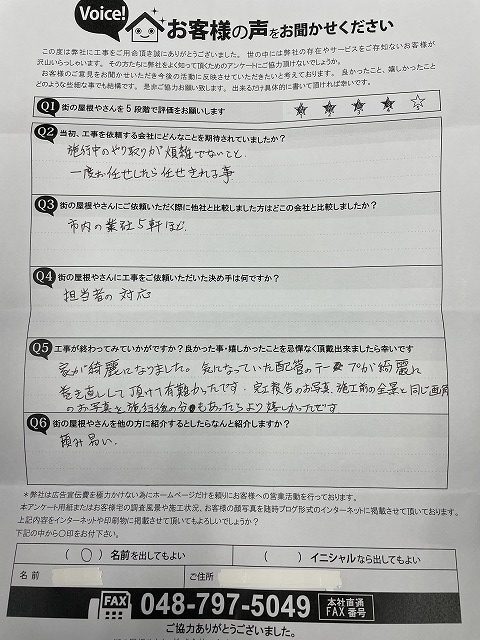 Voice!
お客様の声をお聞かせください
この度は弊社に工事をご用命頂き誠にありがとうございました。 世の中には弊社の存在やサービスをご存知ないお客様が
沢山いらっしゃいます。 その方たちに弊社をよく知って頂くためのアンケートにご協力頂けないでしょうか。
お客様のご意見をお聞かせいただき今後の活動に反映させていただきたいと考えております。 良かったこと、嬉しかったこと
どのような些細な事でも結構です。 是非ご協力お願い致します。 出来るだけ具体的に書いて頂ければ幸いです。
Q1 街の屋根やさんを5段階で評価をお願いします
Q2 当初、工事を依頼する会社にどんなことを期待されていましたか?
施行中のやり取りが煩雑でないこと
一度お任せしたら任せきれる事
Q3 街の屋根やさんにご依頼いただく際に他社と比較しました方はどこの会社と比較しましたか?
市内の業社5軒ほど
Q4 街の屋根やさんに工事をご依頼いただいた決め手は何ですか?
担当者の対応
Q5 工事が終わってみていかがですか?良かった事・嬉しかったことを忌憚なく頂戴出来ましたら幸いです
家が綺麗になりました。気になっていた配管のテープが綺麗に
巻き直しして頂けて有難かったです。完工報告のお写真、施工前の全景と同じ画角
のお写真と施行後の分もあったらより嬉しかったです
Q6 街の屋根やさんを他の方に紹介するとしたらなんと紹介しますか?
頼み易い.
*弊社は広告宣伝費を極力かけない為にホームページだけを頼りにお客様への営業活動を行っております。
本アンケート用紙またはお客様宅の調査風景や施工状況、お客様の顔写真を随時ブログ形式のインターネットに掲載させて頂いております。
上記内容をインターネットや印刷物に掲載させて頂いてもよろしいでしょうか?
下記の中から〇印をお付下さい。
( 〇 ) 名前を出してもよい ( ) イニシャルなら出してもよい
名前 ご住所
FAX 048-797-5049 本社直通 FAX番号
ご協力ありがとうございました。